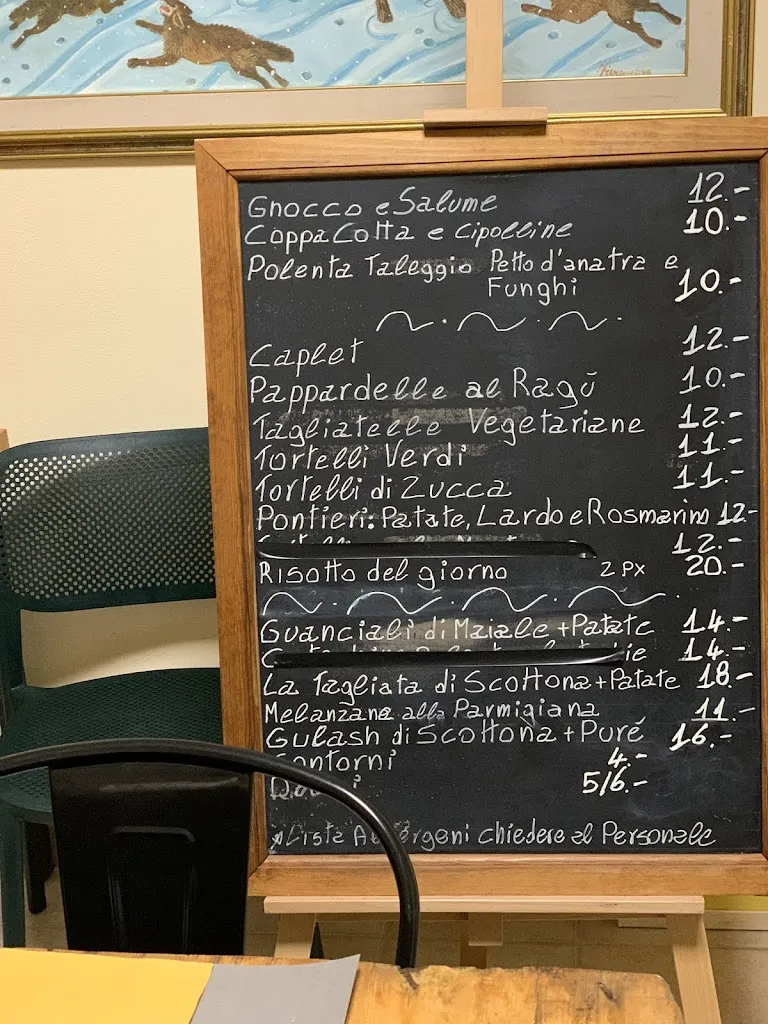 Gnocco e Salume 12.-
Coppa Cotta e Cipolline 10.-
Polenta Taleggio Petto d'anatra e
Funghi 10.-
Caplet 12.-
Pappardelle al Ragŭ 10.-
Tagliatelle Vegetariane 12.-
Tortelli Verdi 11.-
Tortelli di Zucca 11.-
Pontieri: Patate, Lardo e Rosmarino 12-
12.-
Risotto del giorno 2 PX 20.-
Guanciali di Maiale + Patate 14.-
14.-
La Tagliata di Scottona + Patate 18.-
Melanzana alla Parmigiana 11.-
Gulash di Scottona + Puré 16.-
Contorni 4.-
5/6.-
Lista Allergeni chiedere al Personale